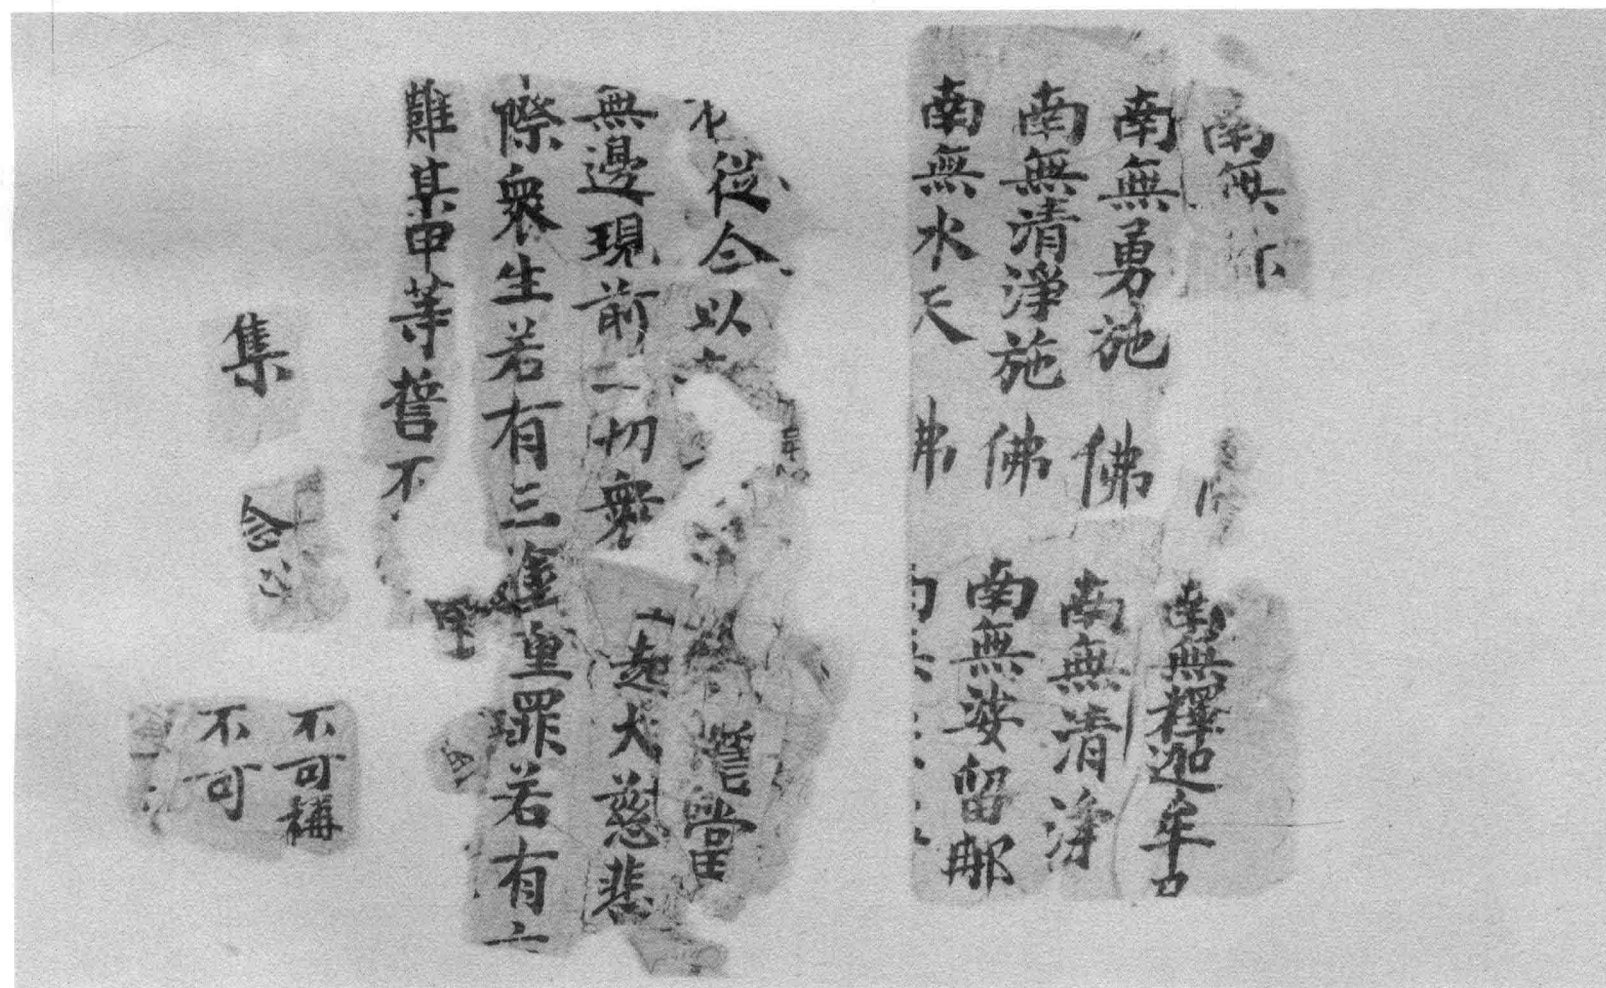 南無 南無釋迦牟
南無勇施 佛 南無清淨
南無清淨施 佛 南無婆留那
南無水天 佛 南無
從今以 誓當
無邊現前一切衆 起大慈悲
際衆生若有三塗重罪若有六
難某甲等誓不
不可稱
集 念 不可